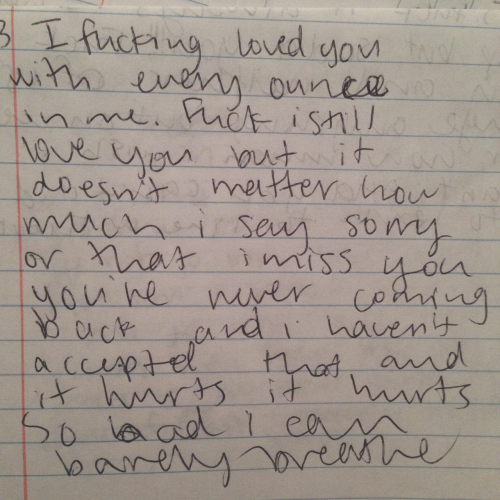 3 I fucking loved you
with every ounce
in me. Fuck i still
love you but it
doesn't matter how
much i say sorry
or that i miss you
you're never coming
back and i haven't
accepted that and
it hurts it hurts
so bad i can
barely breathe